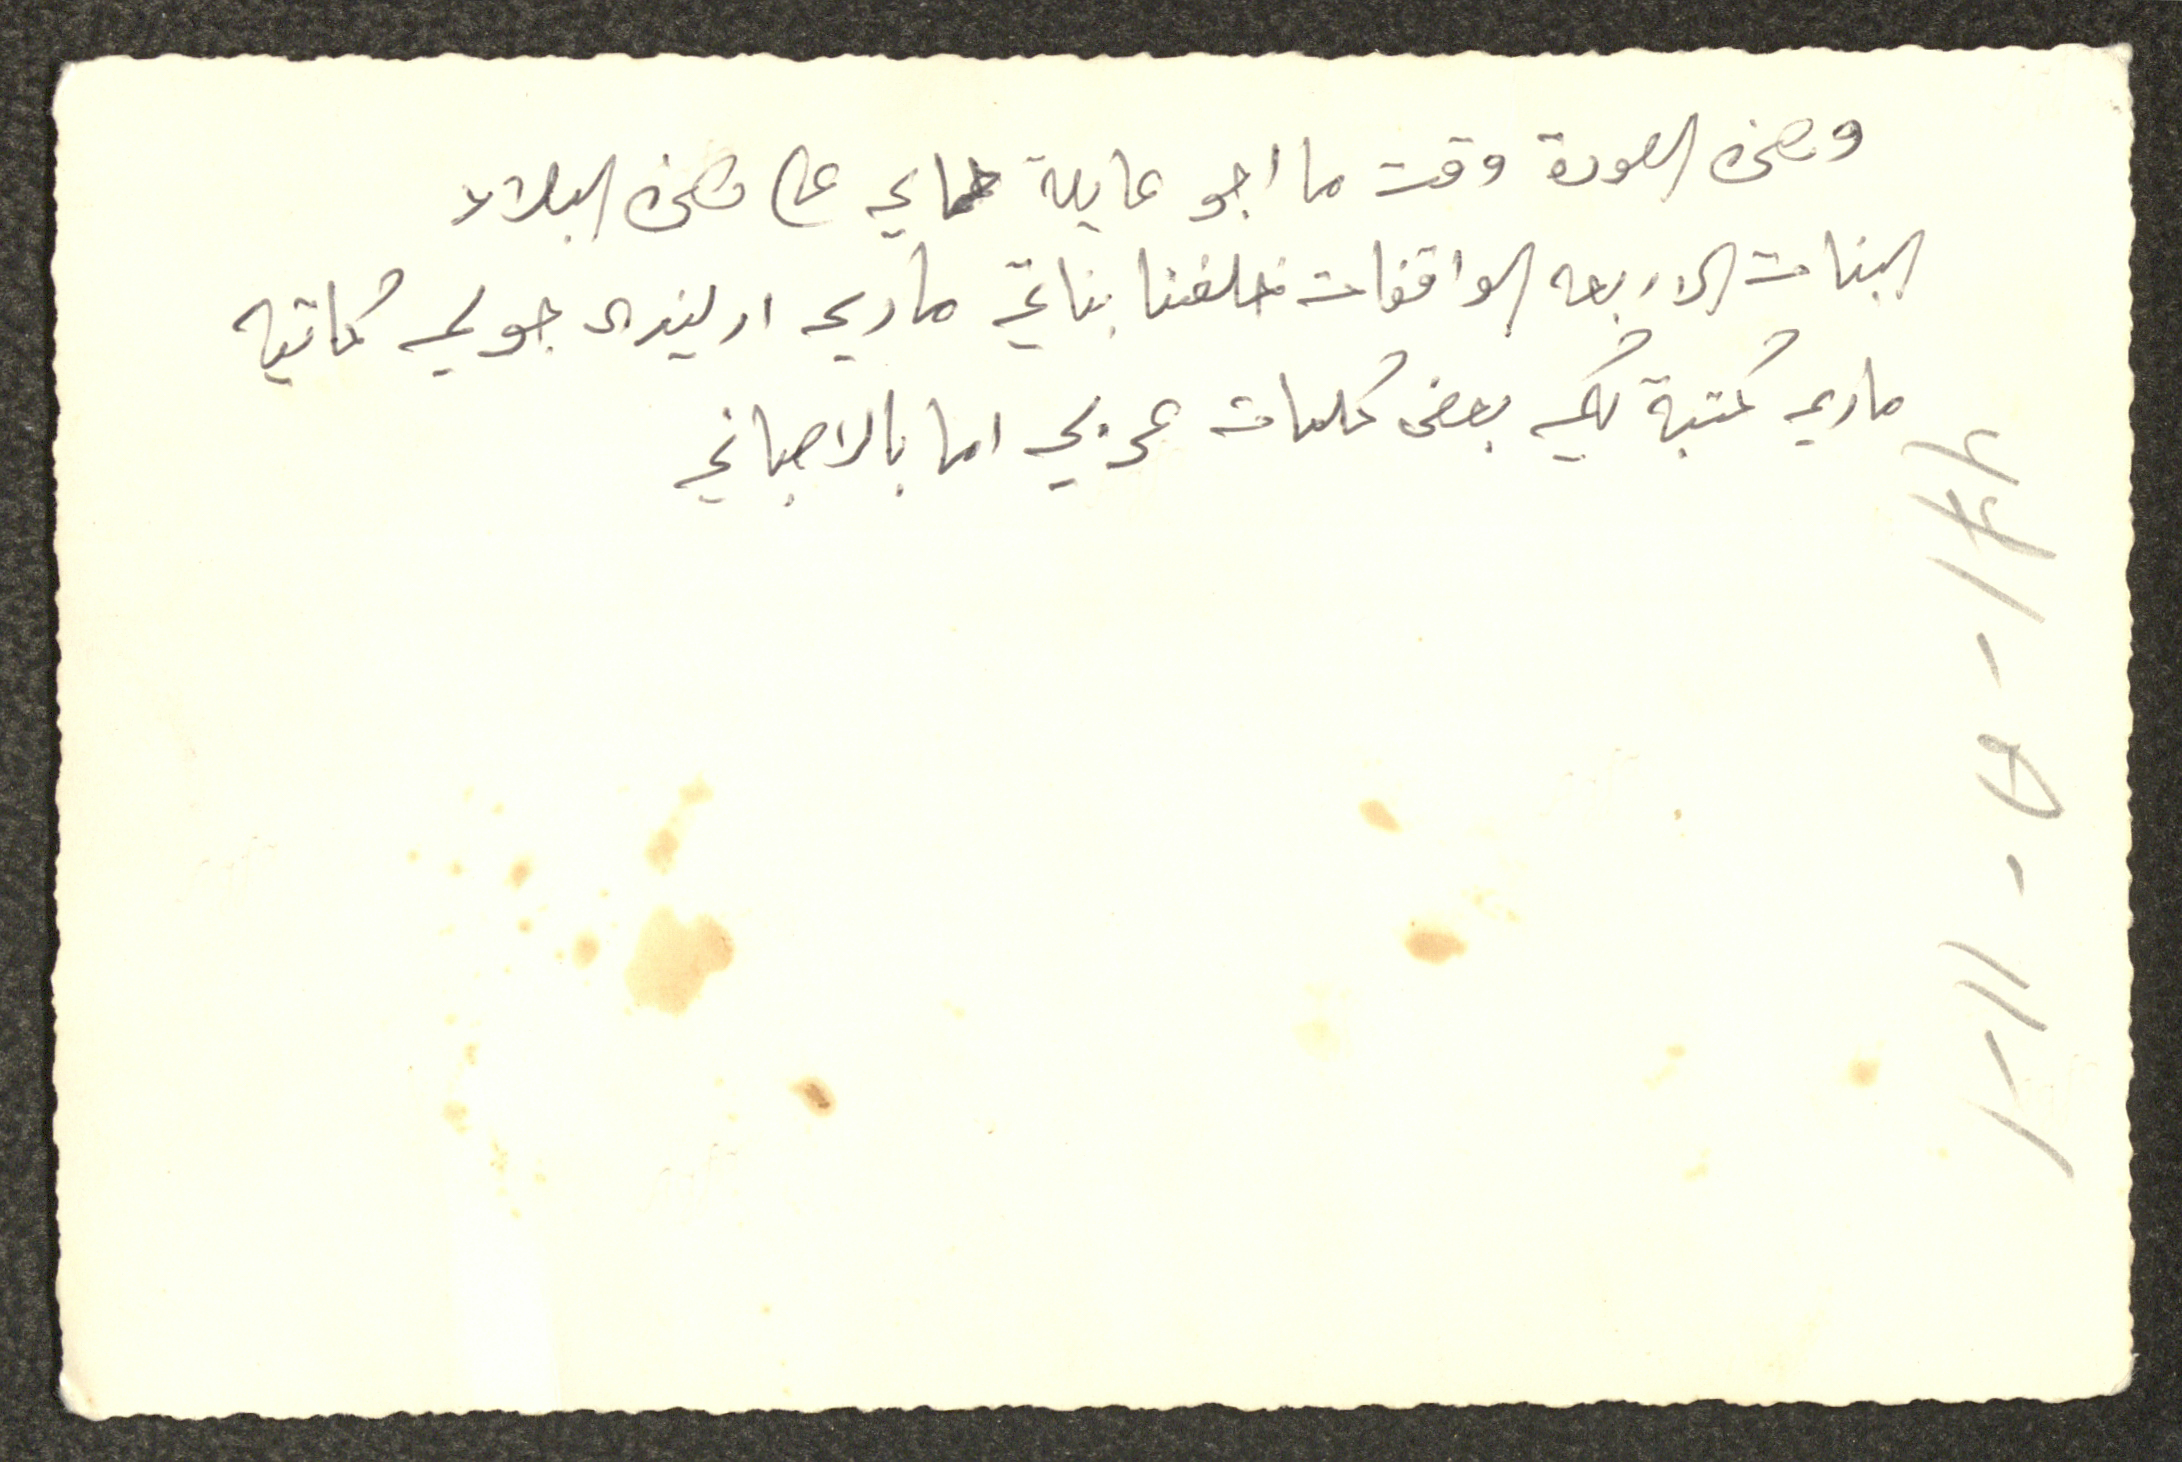 وهذه الصورة وقت ما اجو عايلة حماي على هذه البلاد
البنات الاربعه الواقفات خلفنا بناتي ماري ارليندا جولي كاتيه
ماري كتبة لكي بعض كلمات عربي اما بالاصباني